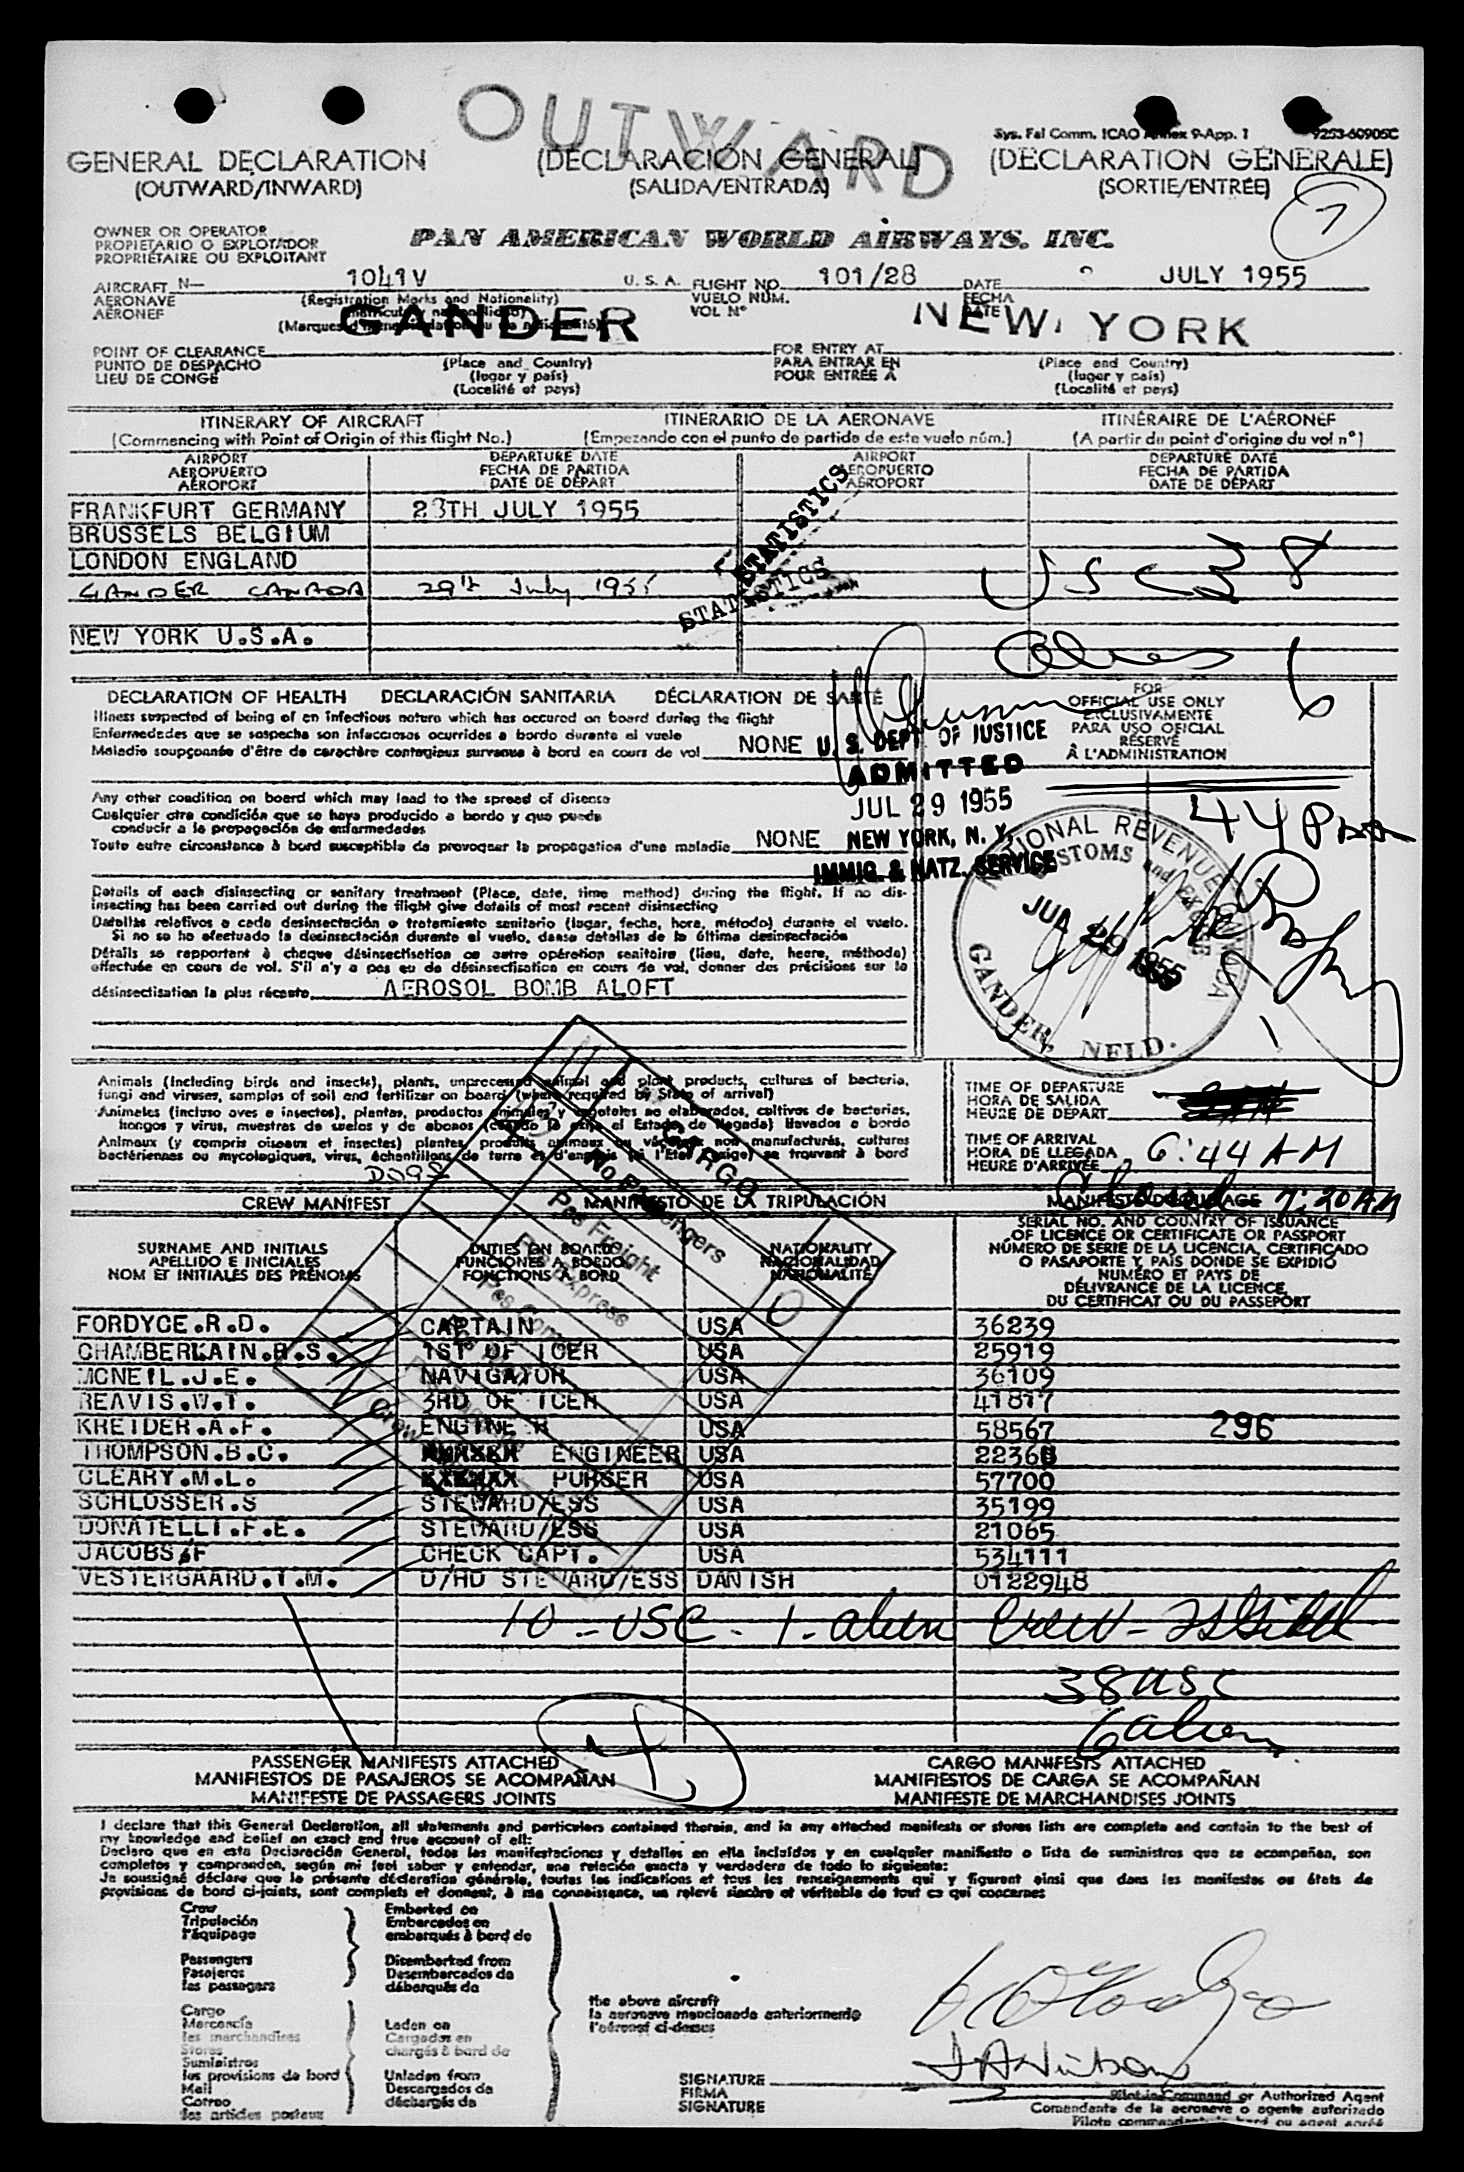 OUTWARD
Sys. Fal Comm. ICAO Annex 9-App. 1
9253-60905C
GENERAL DECLARATION (DECLARACIÓN GENERAL) (DÉCLARATION GÉNÉRALE)
(OUTWARD/INWARD) (SALIDA/ENTRADA) (SORTIE/ENTRÉE)
OWNER OR OPERATOR
PROPIETARIO O EXPLOTADOR
PROPRIÉTAIRE OU EXPLOITANT
PAN AMERICAN WORLD AIRWAYS, INC.
AIRCRAFT N— 1041V U. S. A. FLIGHT NO. 101/28 DATE JULY 1955
AERONAVE (Registration Marks and Nationality) VUELO NÚM. FECHA
AÉRONEF VOL N° DATE
GANDER NEW YORK
POINT OF CLEARANCE (Place and Country) FOR ENTRY AT (Place and Country)
PUNTO DE DESPACHO (lugar y país) PARA ENTRAR EN (lugar y país)
LIEU DE CONGÉ (Localité et pays) POUR ENTRÉE À (Localité et pays)
ITINERARY OF AIRCRAFT ITINERARIO DE LA AERONAVE ITINÉRAIRE DE L'AÉRONEF
(Commencing with Point of Origin of this flight No.) (Empezando con el punto de partida de este vuelo núm.) (A partir du point d'origine du vol n°)
AIRPORT DEPARTURE DATE AIRPORT DEPARTURE DATE
AEROPUERTO FECHA DE PARTIDA AEROPUERTO FECHA DE PARTIDA
AÉROPORT DATE DE DÉPART AÉROPORT DATE DE DÉPART
FRANKFURT GERMANY 28TH JULY 1955
BRUSSELS BELGIUM
LONDON ENGLAND
GANDER CANADA 29th July 1955
NEW YORK U.S.A.
STATISTICS
STATISTICS
USC 38
Aliens 6
DECLARATION OF HEALTH DECLARACIÓN SANITARIA DÉCLARATION DE SANTÉ
Illness suspected of being of an infectious nature which has occured on board during the flight
Enfermedades que se sospecha son infecciosas ocurridas a bordo durante el vuelo
Maladie soupçonnée d'être de caractère contagieux survenue à bord en cours de vol NONE
FOR
OFFICIAL USE ONLY
EXCLUSIVAMENTE
PARA USO OFICIAL
RÉSERVÉ
À L'ADMINISTRATION
U. S. DEPT OF JUSTICE
ADMITTED
JUL 29 1955
NEW YORK, N. Y.
IMMIG. & NATZ. SERVICE
Any other condition on board which may lead to the spread of disease
Cualquier otra condición que se haya producido a bordo y que pueda
conducir a la propagación de enfermedades
Toute autre circonstance à bord susceptible de provoquer la propagation d'une maladie NONE
44 Pax
NATIONAL REVENUE CANADA
CUSTOMS and EXCISE
JUL 29 1955
GANDER, NFLD.
Details of each disinsecting or sanitary treatment (Place, date, time method) during the flight. If no dis-
insecting has been carried out during the flight give details of most recent disinsecting
Detallas relativos a cada desinsectación o tratamiento sanitario (lugar, fecha, hora, método) durante el vuelo.
Si no se ha efectuado la desinsectación durante el vuelo, danse detallas de la última desinsectación
Détails se rapportant à chaque désinsectisation ou autre opération sanitaire (lieu, date, heure, méthode)
effectuée en cours de vol. S'il n'y a pas eu de désinsectisation en cours de vol, donner des précisions sur la
désinsectisation la plus récente AEROSOL BOMB ALOFT
Animals (including birds and insects), plants, unprocessed animal and plant products, cultures of bacteria,
fungi and viruses, samples of soil and fertilizer on board (where required by State of arrival)
Animales (incluso aves e insectos), plantas, productos animales y vegetales no elaborados, cultivos de bacterias,
hongos y virus, muestras de suelos y de abonos (cuando lo exija el Estado de llegada) llevados a bordo
Animaux (y compris oiseaux et insectes) plantes, produits animaux ou végétaux non manufacturés, cultures
bactériennes ou mycologiques, virus, échantillons de terre et d'engrais (si l'Etat l'exige) se trouvant à bord
DOGS
TIME OF DEPARTURE
HORA DE SALIDA
HEURE DE DÉPART
TIME OF ARRIVAL
HORA DE LLEGADA
HEURE D'ARRIVÉE 6:44 AM
7:20 AM
CARGO
No Passengers
Pcs Freight
Pcs Express
Crew
CREW MANIFEST MANIFIESTO DE LA TRIPULACIÓN MANIFESTE D'ÉQUIPAGE
SURNAME AND INITIALS DUTIES ON BOARD NATIONALITY
APELLIDO E INICIALES FUNCIONES A BORDO NACIONALIDAD
NOM ET INITIALES DES PRÉNOMS FONCTIONS À BORD NATIONALITÉ
SERIAL NO. AND COUNTRY OF ISSUANCE
OF LICENCE OR CERTIFICATE OR PASSPORT
NÚMERO DE SERIE DE LA LICENCIA, CERTIFICADO
O PASAPORTE Y PAIS DONDE SE EXPIDIÓ
NUMÉRO ET PAYS DE
DÉLIVRANCE DE LA LICENCE,
DU CERTIFICAT OU DU PASSEPORT
FORDYCE.R.D. CAPTAIN USA 36239
CHAMBERLAIN.R.S. 1ST OFFICER USA 25919
MCNEIL.J.E. NAVIGATOR USA 36109
REAVIS.W.T. 3RD OFFICER USA 41817
KREIDER.A.F. ENGINEER USA 58567 296
THOMPSON.B.C. ENGINEER USA 22368
CLEARY.M.L. PURSER USA 57700
SCHLOSSER.S STEWARD/ESS USA 35199
DONATELLI.F.E. STEWARD/ESS USA 21065
JACOBS.F CHECK CAPT. USA 534111
VESTERGAARD.T.M. D/HD STEWARD/ESS DANISH 0122948
10 - USC - 1 - alien Crew -
38 USC
6 alien
PASSENGER MANIFESTS ATTACHED CARGO MANIFESTS ATTACHED
MANIFIESTOS DE PASAJEROS SE ACOMPAÑAN MANIFIESTOS DE CARGA SE ACOMPAÑAN
MANIFESTE DE PASSAGERS JOINTS MANIFESTE DE MARCHANDISES JOINTS
I declare that this General Declaration, all statements and particulars contained therein, and in any attached manifests or stores lists are complete and contain to the best of
my knowledge and belief an exact and true account of all:
Declaro que en esta Declaración General, todos las manifestaciones y detalles en ella incluídos y en cualquier manifiesto o lista de suministros que se acompañan, son
completos y comprenden, según mi leal saber y entender, una relación exacta y verdadera de todo lo siguiente:
Je soussigné déclare que la présente déclaration générale, toutes les indications et tous les renseignements qui y figurent ainsi que dans les manifestes ou états de
provisions de bord ci-joints, sont complets et donnent, à ma connaissance, un relevé sincère et véritable de tout ce qui concerne:
Crew Embarked on
Tripulación Embarcados en
l'équipage embarqués à bord de
Passengers Disembarked from
Pasajeros Desembarcados de
les passagers débarqués de
Cargo the above aircraft
Mercancía Laden on la aeronave mencionada anteriormente
les marchandises Cargados en l'aéronef ci-dessus
Stores chargés à bord de
Suministros
les provisions de bord Unladen from
Mail Descargados de
Correo déchargés de
les articles postaux
SIGNATURE
FIRMA
SIGNATURE
Pilot in Command or Authorized Agent
Comandante de la aeronave o agente autorizado
Pilote commandant de bord ou agent agréé